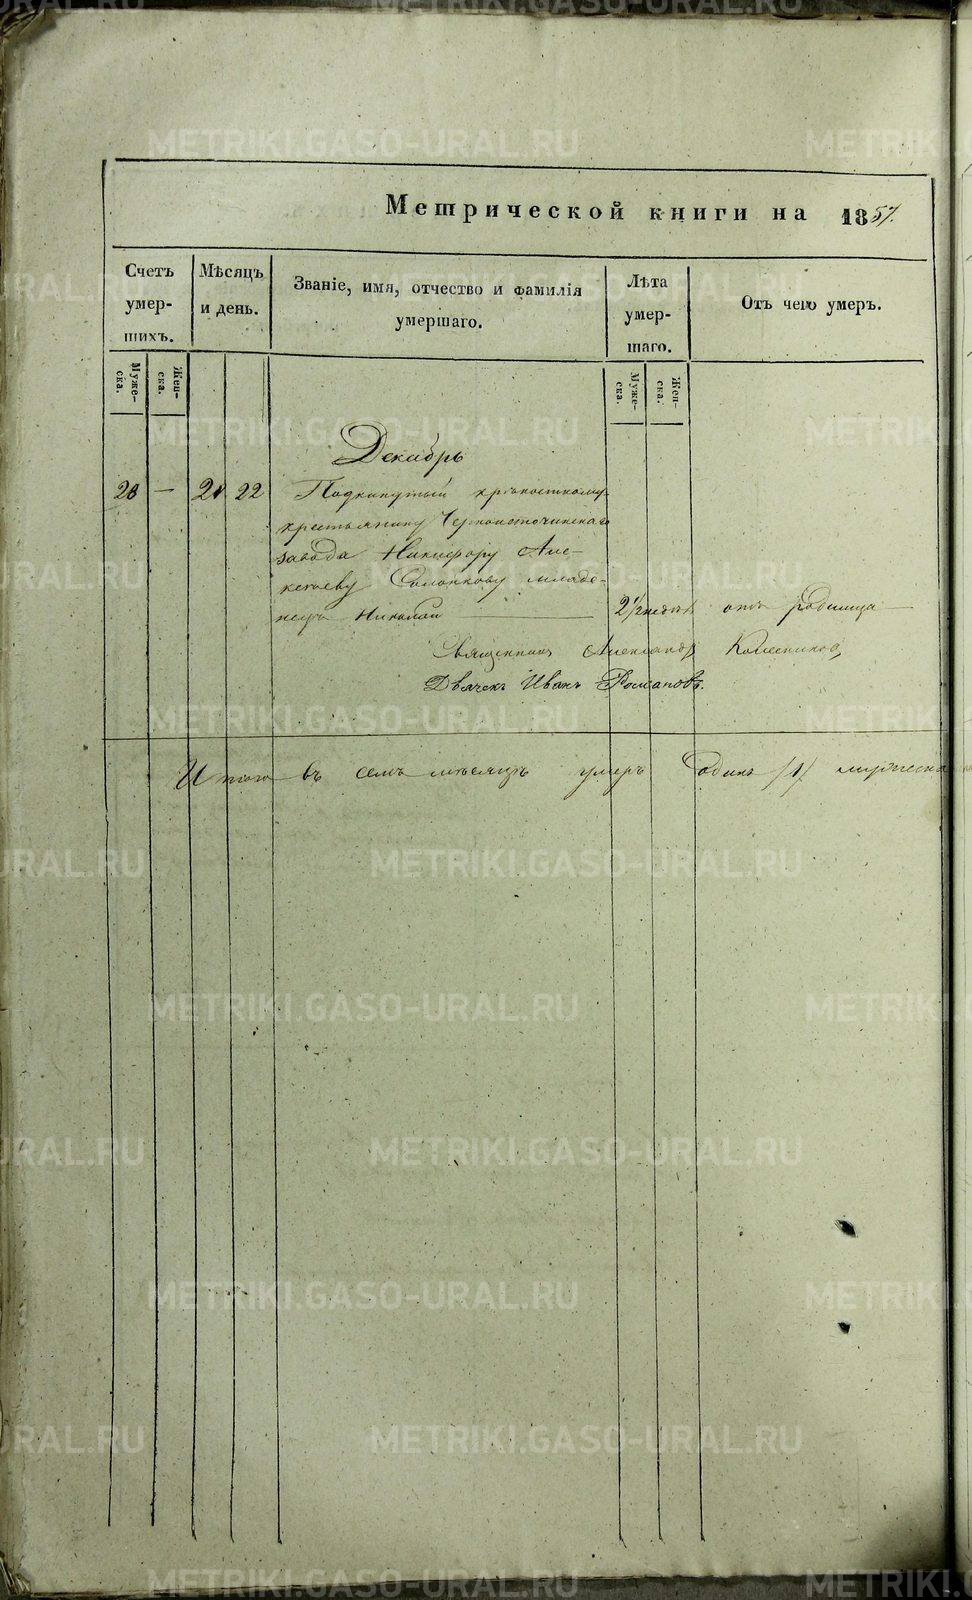 Метрической книги на 1857.
Счетъ умер-шихъ.
Мѣсяцъ и день.
Званіе, имя, отчество и фамилія умершаго.
Лѣта умер-шаго.
Отъ чего умеръ.
Муже-ска.
Жен-ска.
Муже-ска.
Жен-ска.
Декабрь
28 — 21 22 Подкинутый крѣпостному
крестьянину Черноисточинскаго
завода Никифору Але-
ксѣеву Солопкову младе-
нецъ Николай 2 1/2 недѣль отъ родимца
Священникъ Александръ Колесниковъ,
Дьячекъ Иванъ Романовъ.
Итого въ семъ мѣсяцѣ умеръ одинъ /1/ мужеска
METRIKI.GASO-URAL.RU